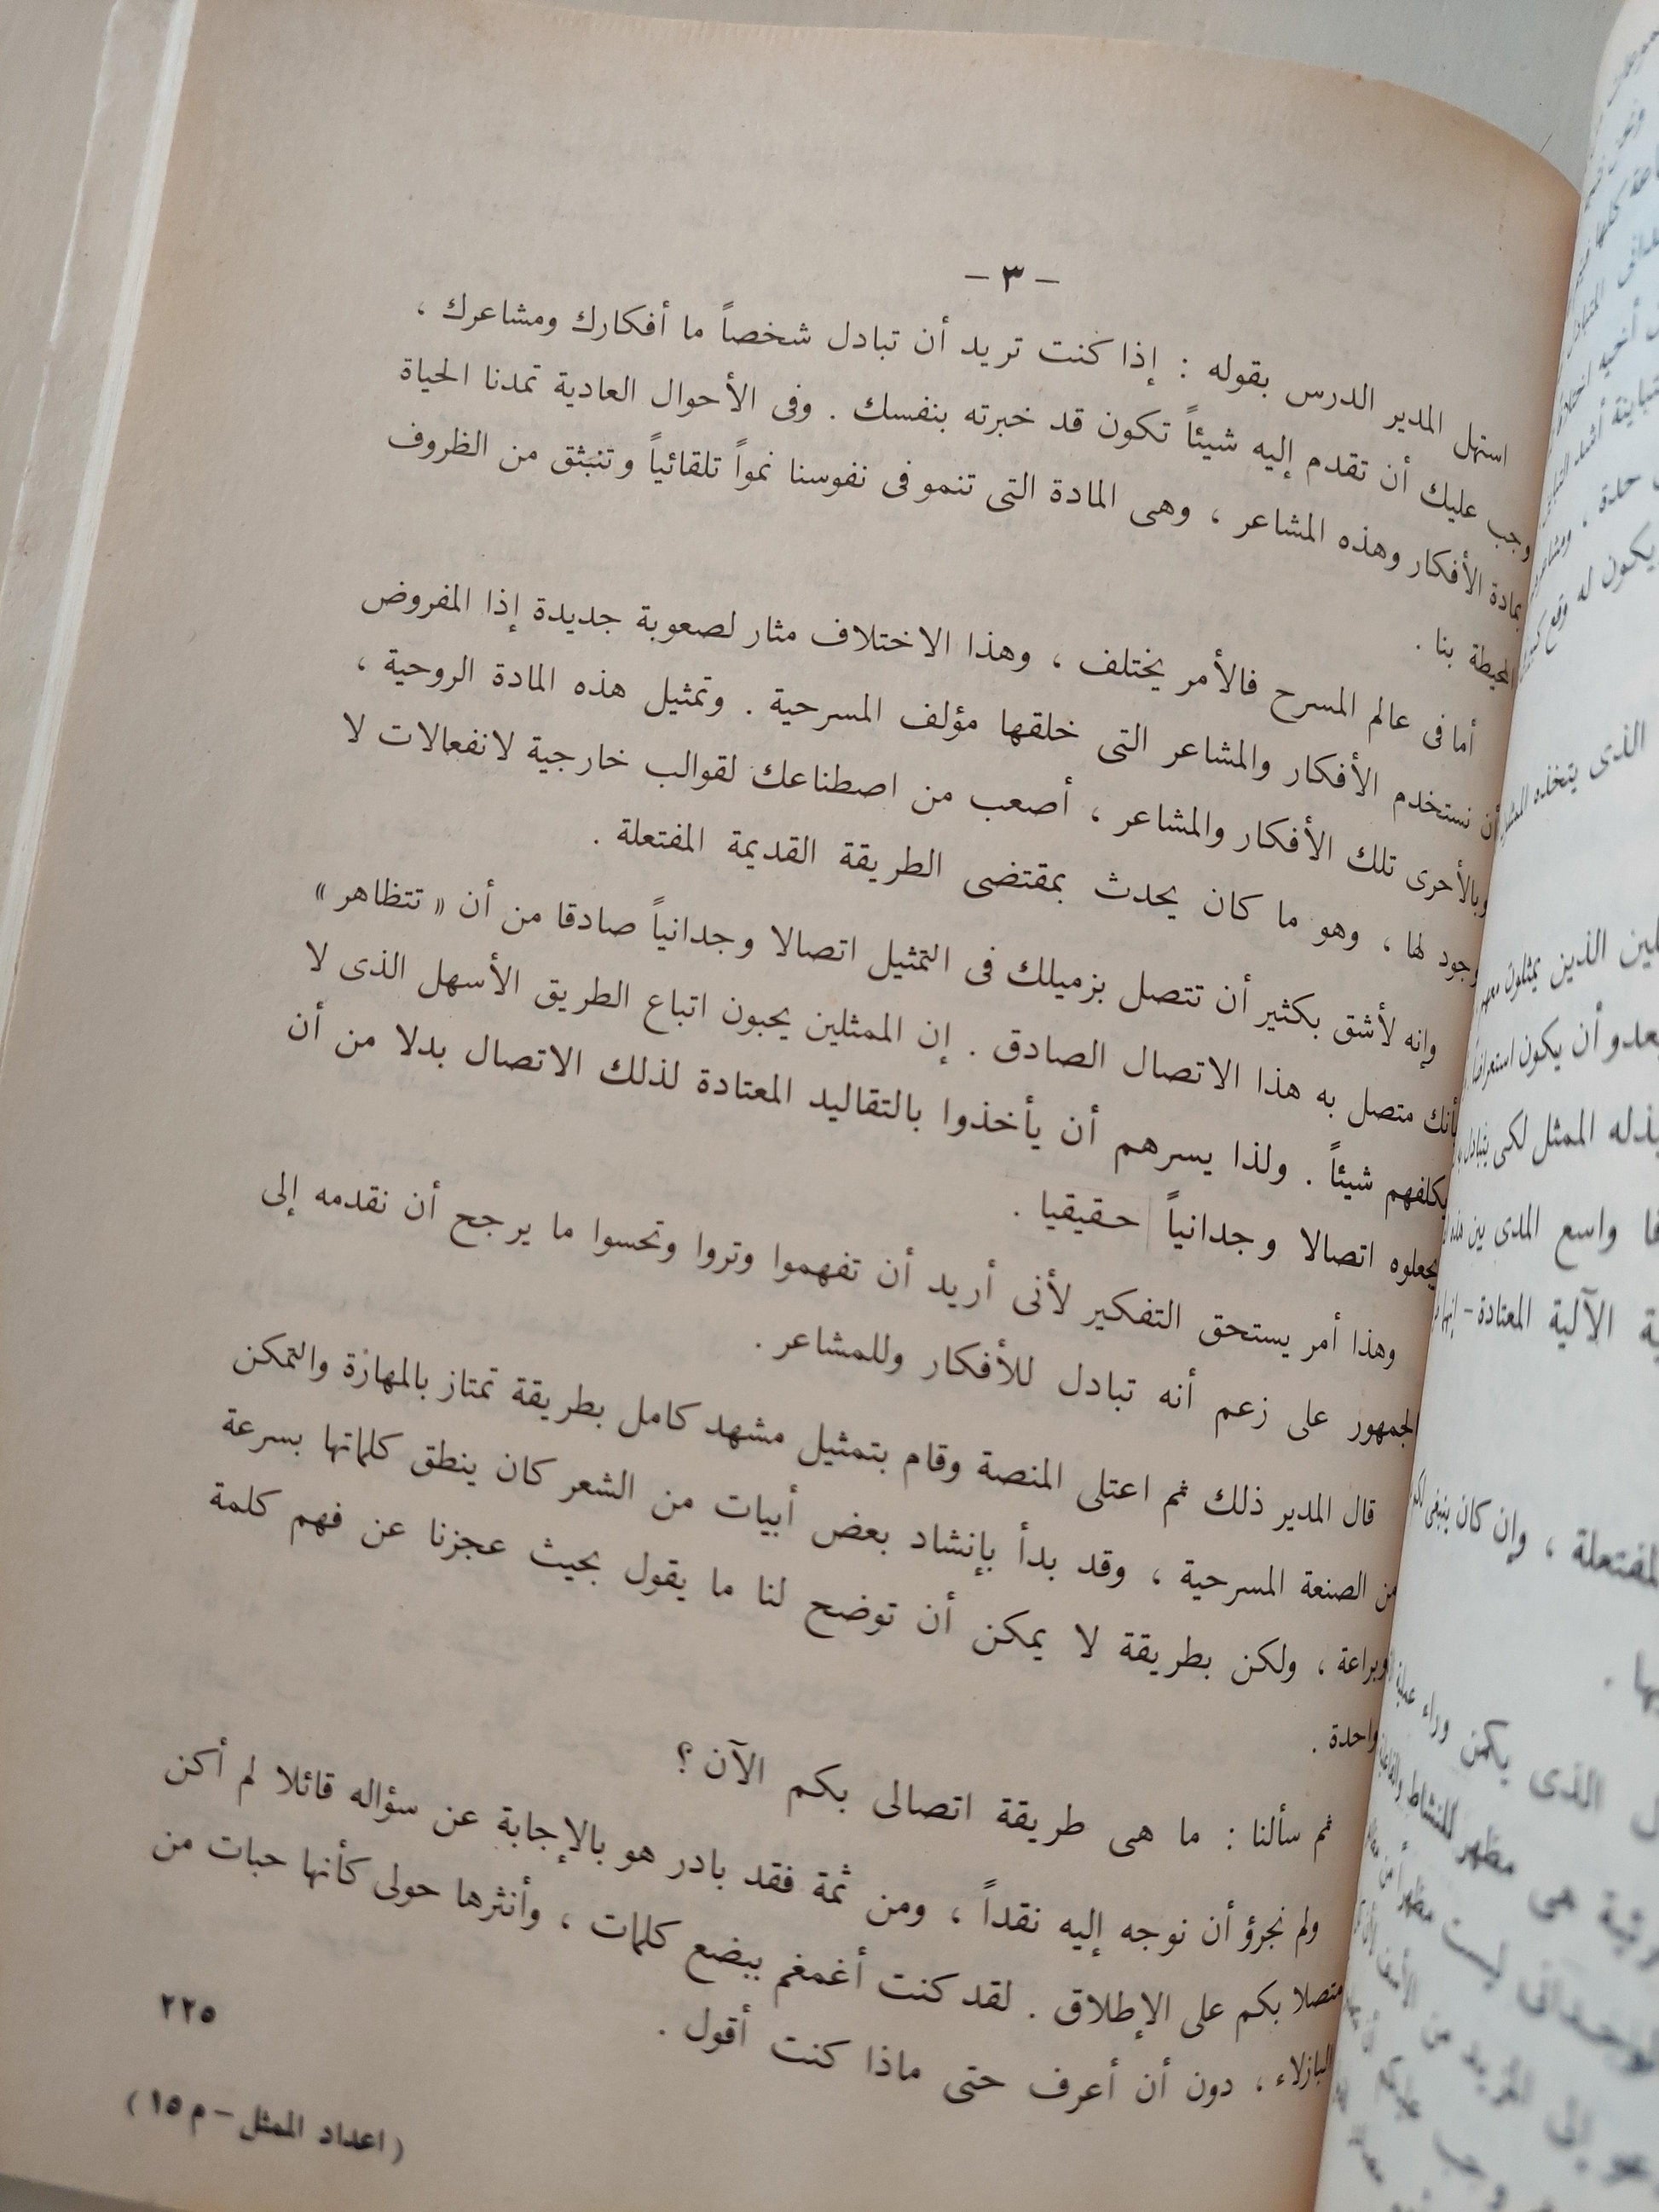 – ٣ –
استهل المدير الدرس بقوله : إذا كنت تريد أن تبادل شخصاً ما أفكارك ومشاعرك ،
وجب عليك أن تقدم إليه شيئاً تكون قد خبرته بنفسك . وفى الأحوال العادية تمدنا الحياة
بمادة الأفكار وهذه المشاعر ، وهى المادة التى تنمو فى نفوسنا نمواً تلقائياً وتنبثق من الظروف
المحيطة بنا .
أما فى عالم المسرح فالأمر يختلف ، وهذا الاختلاف مثار لصعوبة جديدة إذا المفروض
أن نستخدم الأفكار والمشاعر التى خلقها مؤلف المسرحية . وتمثيل هذه المادة الروحية ،
وبالأحرى تلك الأفكار والمشاعر ، أصعب من اصطناعك لقوالب خارجية لانفعالات لا
وجود لها ، وهو ما كان يحدث بمقتضى الطريقة القديمة المفتعلة .
وإنه لأشق بكثير أن تتصل بزميلك فى التمثيل اتصالا وجدانياً صادقا من أن « تتظاهر »
بأنك متصل به هذا الاتصال الصادق . إن الممثلين يحبون اتباع الطريق الأسهل الذى لا
يكلفهم شيئاً . ولذا يسرهم أن يأخذوا بالتقاليد المعتادة لذلك الاتصال بدلا من أن
يجعلوه اتصالا وجدانياً حقيقيا .
وهذا أمر يستحق التفكير لأنى أريد أن تفهموا وتروا وتحسوا ما يرجح أن نقدمه إلى
الجمهور على زعم أنه تبادل للأفكار وللمشاعر .
قال المدير ذلك ثم اعتلى المنصة وقام بتمثيل مشهد كامل بطريقة تمتاز بالمهارة والتمكن
من الصنعة المسرحية ، وقد بدأ بإنشاد بعض أبيات من الشعر كان ينطق كلماتها بسرعة
وبراعة ، ولكن بطريقة لا يمكن أن توضح لنا ما يقول بحيث عجزنا عن فهم كلمة
واحدة .
ثم سألنا : ما هى طريقة اتصالى بكم الآن ؟
ولم نجرؤ أن نوجه إليه نقداً ، ومن ثمة فقد بادر هو بالإجابة عن سؤاله قائلا لم أكن
متصلا بكم على الإطلاق . لقد كنت أغمغم ببضع كلمات ، وأنثرها حولى كأنها حبات من
البازلاء ، دون أن أعرف حتى ماذا كنت أقول .
٢٢٥
( اعداد الممثل – م ١٥ )
يكون له وقع
الذى يتخذه
الذين يمثلون
أن يكون
الممثل لكى
واسع المدى بين هذه
الآلية المعتادة – إنها
المفتعلة ، وإن كان ينبغى
الذى يكمن وراء
هى مظهر للنشاط